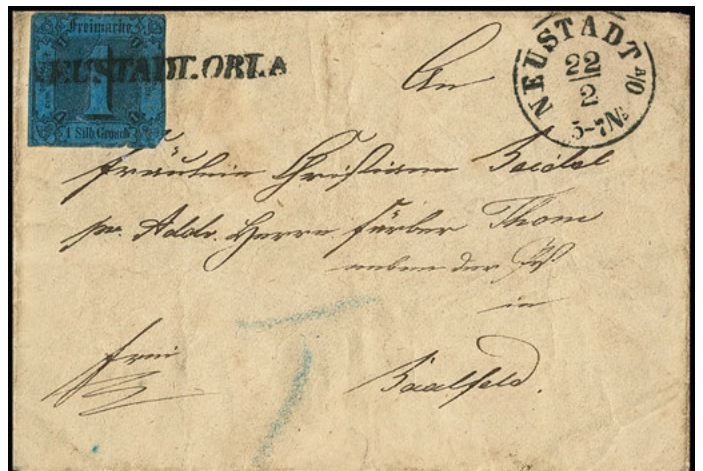 Freimarke
1
1 Silb. Grosch.
NEUSTADT.ORLA
NEUSTADT a/O
22
2
5-7N.
An
Fräulein Christiane Seidel
pr. Addr. Herrn Färber Thom
neben der
in
frei
Saalfeld.